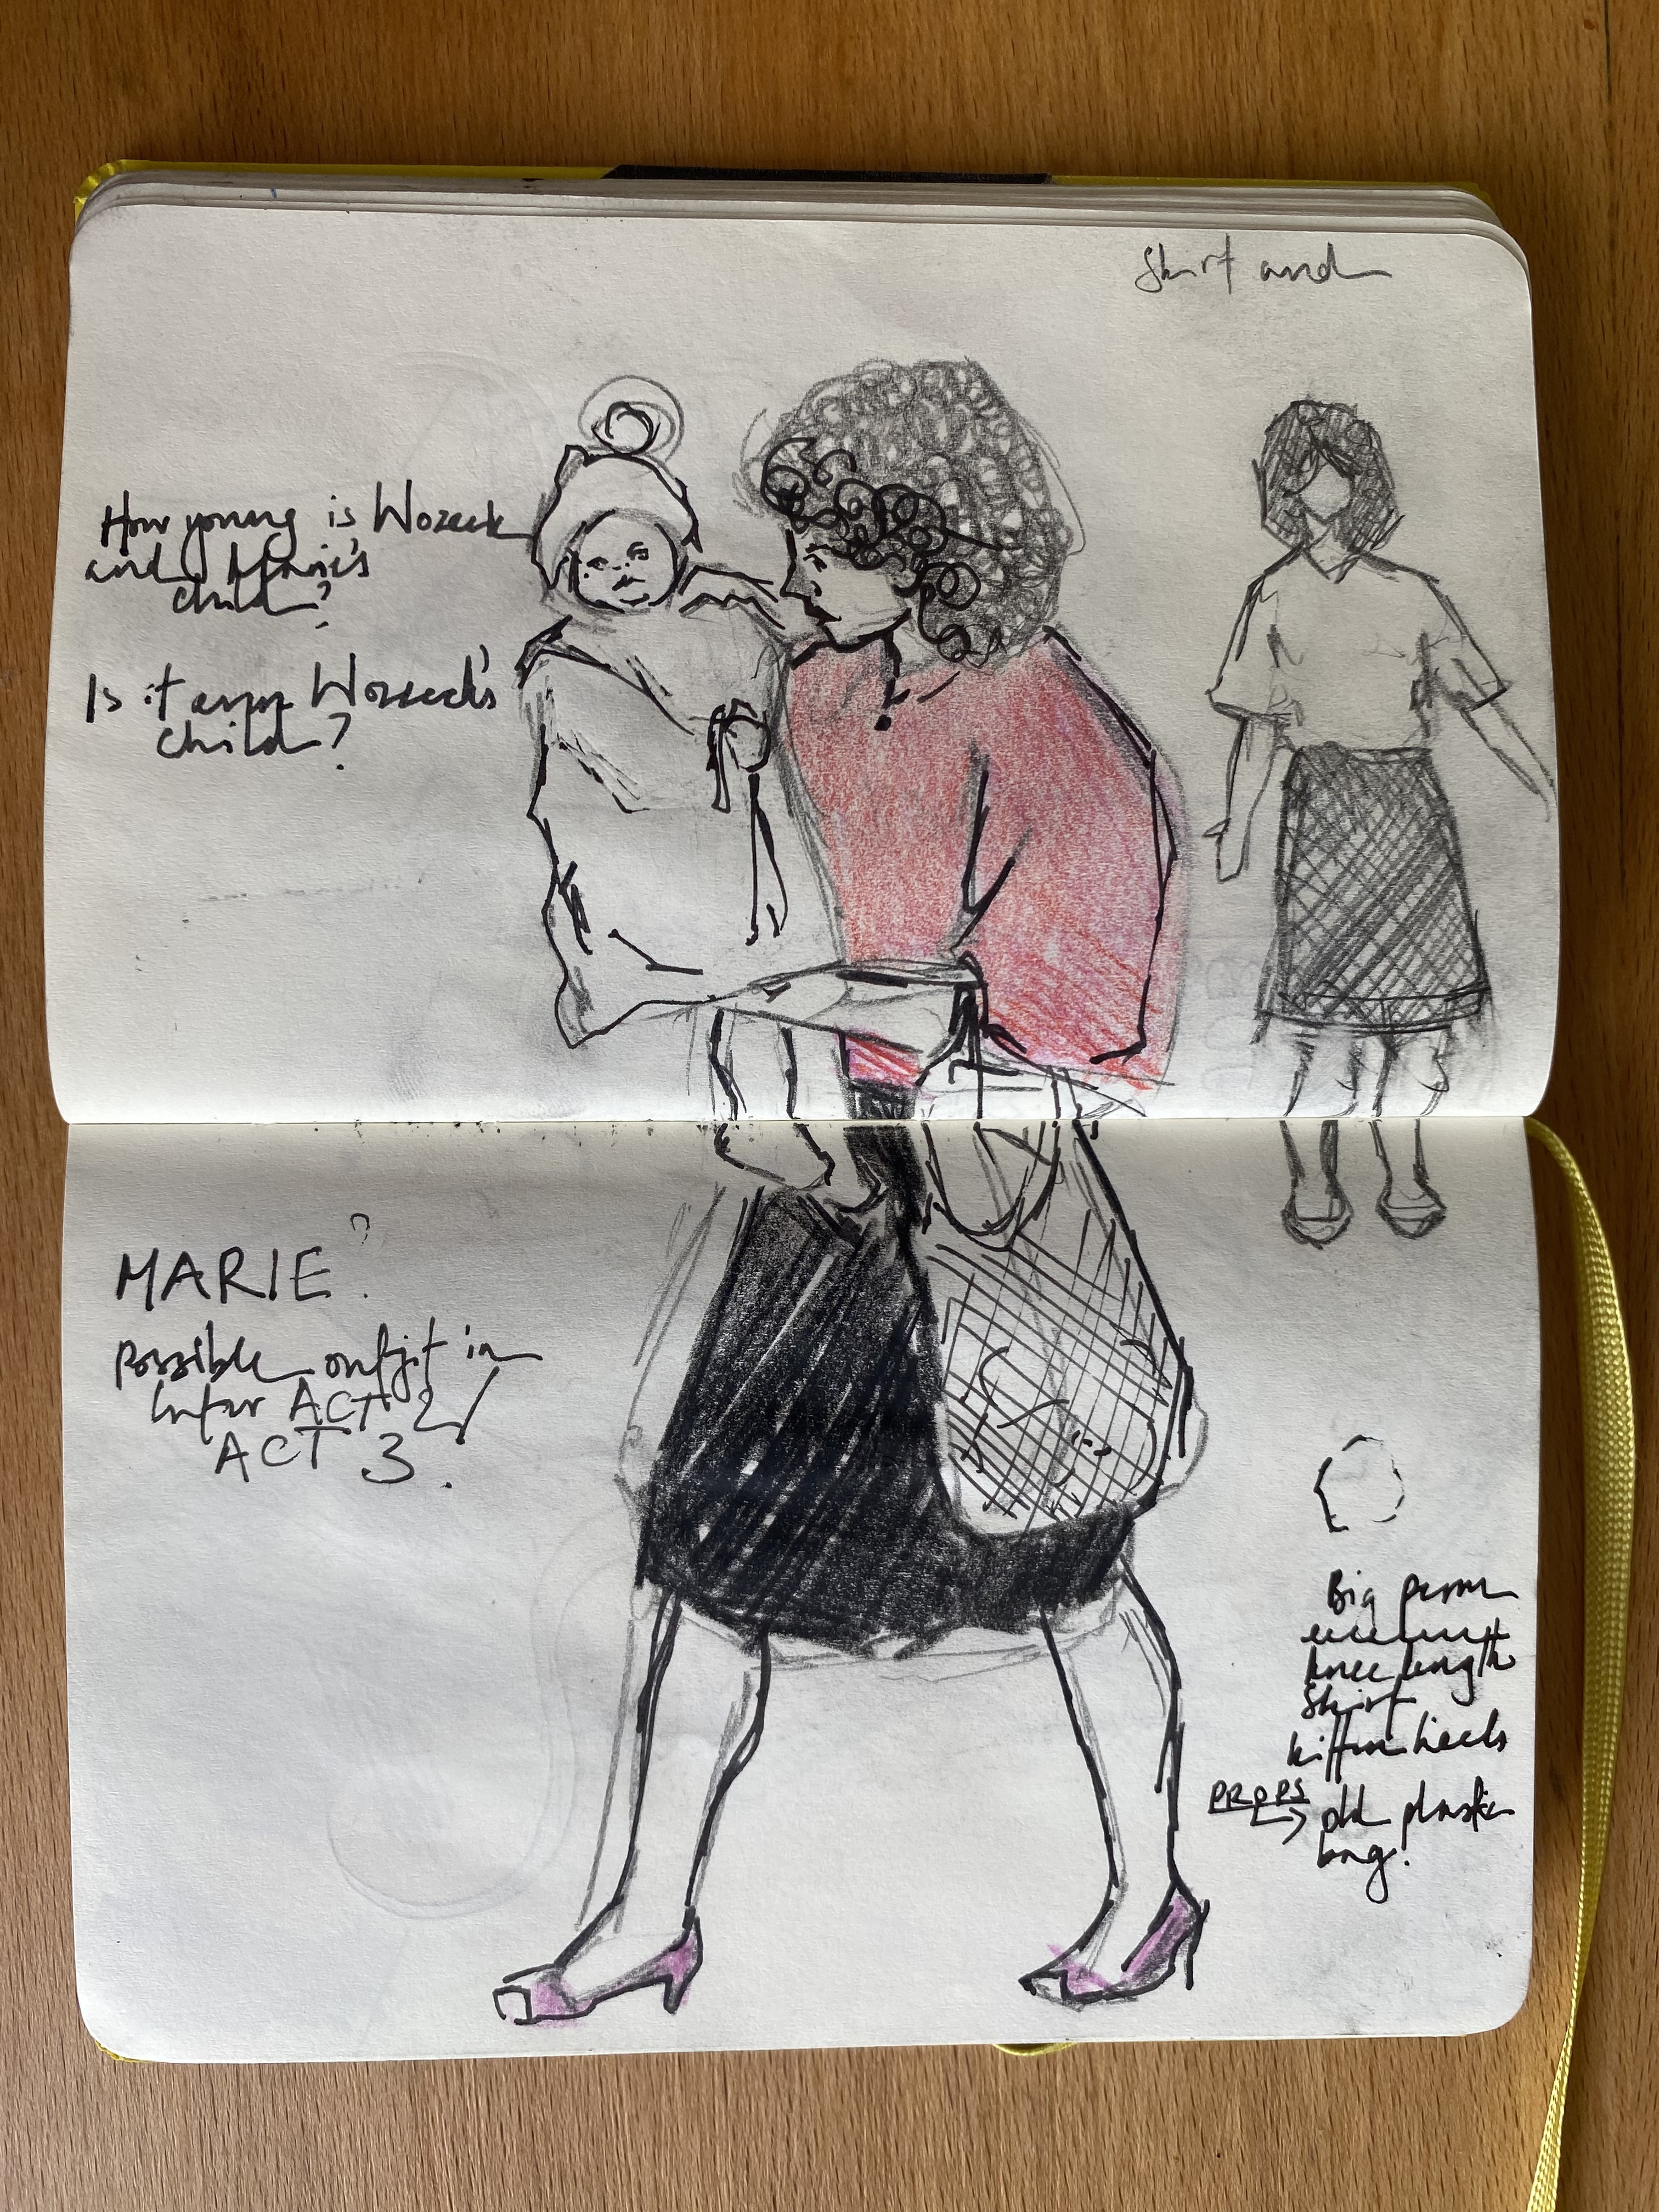 Skirt and
How young is Wozeck
and Marie's
child?
Is it even Wozzeck's
child?
MARIE?
Possible outfit in
later ACT 2/
ACT 3.
Big perm
knee length
Skirt
kitten heels
PROPS → old plastic
bag.